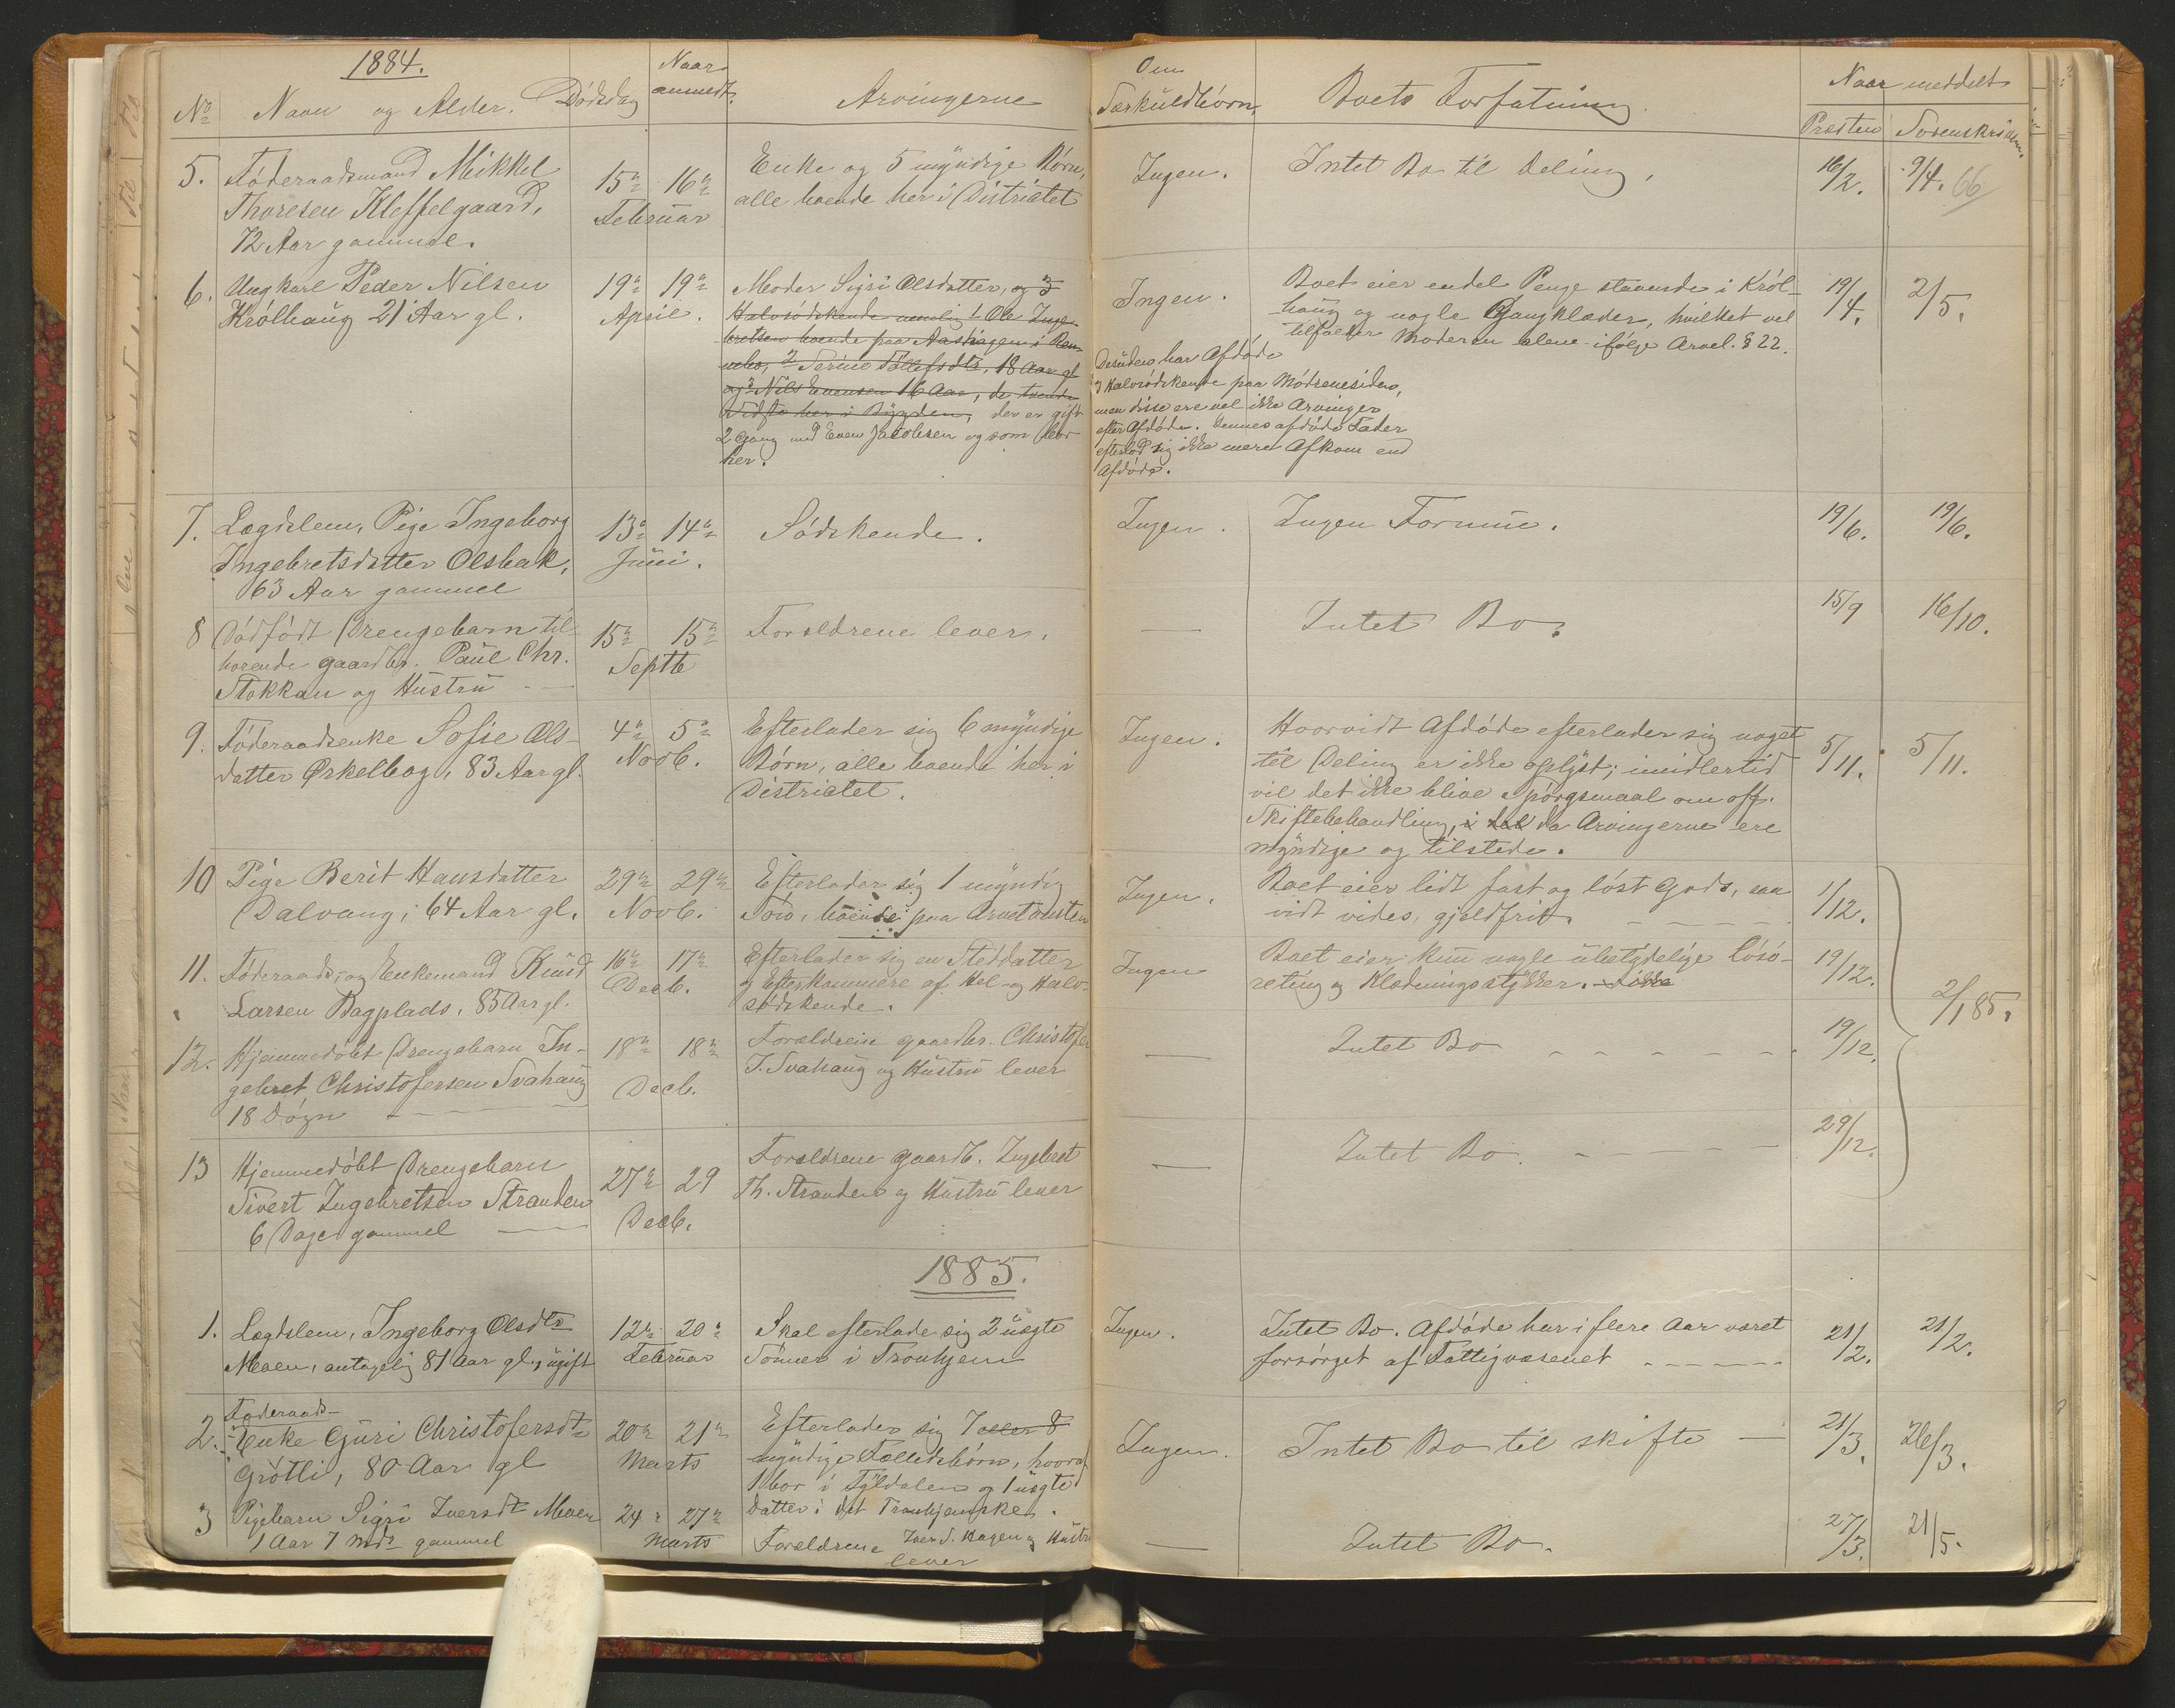 1884.
No Navn og Alder. Dødsdag Naar anmeldt. Arvingerne
Om Særkuldbørn. Boets Forfatning. Naar meddelt
Præsten Sorenskriveren.
5. Føderaadsmand Mikkel
Thoresen Kleffelgaard,
72 Aar gammel.
15n 16n
Februar
Enke og 5 myndige Børn,
alle boende her i Districtet
Ingen. Intet Bo til Deling. 16/2. 9/4. 66
6. Ungkarl Peder Nilsen
Królhaug 21 Aar gl.
19n 19n
April.
Moder Sigri Olsdatter, og 3
Halvsødskende nemlig 1 Ole Inge-
bretsen boende paa Aashagen i Ren-
nebo, 2 Serine Tollefsdtr, 18 Aar gl
og 3 Nils Evensen 16 Aar, de tvende
sidste her i Bygden, der er gift
2 Gang med Even Jacobsen og som bor
her.
Ingen.
Boet eier endel Penge staaende i Król-
haug og nogle Gangklæder, hvilket vel
tilfalder Moderen alene ifølge Arvel. § 22.
Desuden har Afdøde
3 Halvsødskende paa Mødrenesiden,
men disse ere vel ikke Arvinger
efter Afdøde. Dennes afdøde Fader
efterlod sig ikke mere Afkom end
Afdøde.
19/4. 2/5.
7. Lægdslem, Pige Ingeborg
Ingebretsdatter Olsbak,
63 Aar gammel
13n 14n
Juni.
Sødskende.
Ingen. Ingen Formue. 19/6. 19/6.
8 Dødfødt Drengebarn til
hørende gaardbr. Paul Chr.
Stokkan og Hustru
15n 15n
Septb
Forældrene lever.
— Intet Bo. 15/9 16/10.
9. Føderaadsenke Sofie Ols-
datter Ørkelbog, 83 Aar gl.
4n 5n
Novb.
Efterlader sig 6 myndige
Børn, alle boende her i
Districtet.
Ingen.
Hvorvidt Afdøde efterlader sig noget
til Deling er ikke oplyst; imidlertid
vil det ikke blive Spørgsmaal om off.
Skiftebehandling, da Arvingerne ere
myndige og tilstede.
5/11. 5/11.
10 Pige Berit Hansdatter
Dalvang, 64 Aar gl.
29n 29n
Novb.
Efterlader sig 1 myndig
Søn, boende paa Arvetomten
Ingen.
Boet eier lidt fast og løst Gods, saa
vidt vides, gjeldfrit
1/12.
11. Føderaads- og Enkemand Knud
Larsen Bagplads, 85 Aar gl.
16n 17n
Decb.
Efterlader sig en Steddatter
og Efterkommere af Hel- og Halv-
sødskende.
Ingen
Boet eier kun nogle ubetydelige Løsø-
reting og Klædningsstykker.
19/12. 2/1 85.
12. Hjemmedøbt Drengebarn In-
gebret Christofersen Svahaug
18 Døgn
18n 18n
Decb.
Forældrene gaardbr. Christofer
J. Svahaug og Hustru lever
— Intet Bo 19/12.
13 Hjemmedøbt Drengebarn
Sivert Ingebretsen Stranden
6 Dage gammel
27n 29
Decb.
Forældrene gaardb. Ingebret
Th. Stranden og Hustru lever
— Intet Bo. 29/12.
1885.
1. Lægdslem, Ingeborg Olsdtr
Moen, antagelig 81 Aar gl., ugift
12n 20n
Februar
Skal efterlade sig 2 uægte
Sønner i Tronhjem
Ingen.
Intet Bo. Afdøde har i flere Aar været
forsørget af Fattigvæsenet
21/2. 21/2.
2. Føderaads-
Enke Guri Christofersdtr
Grötli, 80 Aar gl
20n 21n
Marts
Efterlader sig 7 eller 8
myndige Fælledsbørn, hvoraf
1 bor i Tyldalen og 1 uægte
Datter i det Tronhjemske.
Ingen. Intet Bo til skifte — 21/3. 26/3.
3 Pigebarn Sigri Iversdt Moen
1 Aar 7 Mdr gammel
24n 27n
Marts
Forældrene Iver S. Hagen og Hustru
lever
— Intet Bo. 27/3. 21/5.